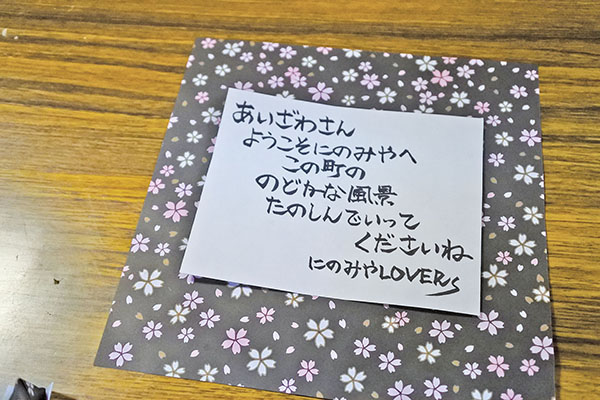 あいざわさん
ようこそにのみやへ
この町の
のどかな風景
たのしんでいって
くださいね
にのみやLOVERs